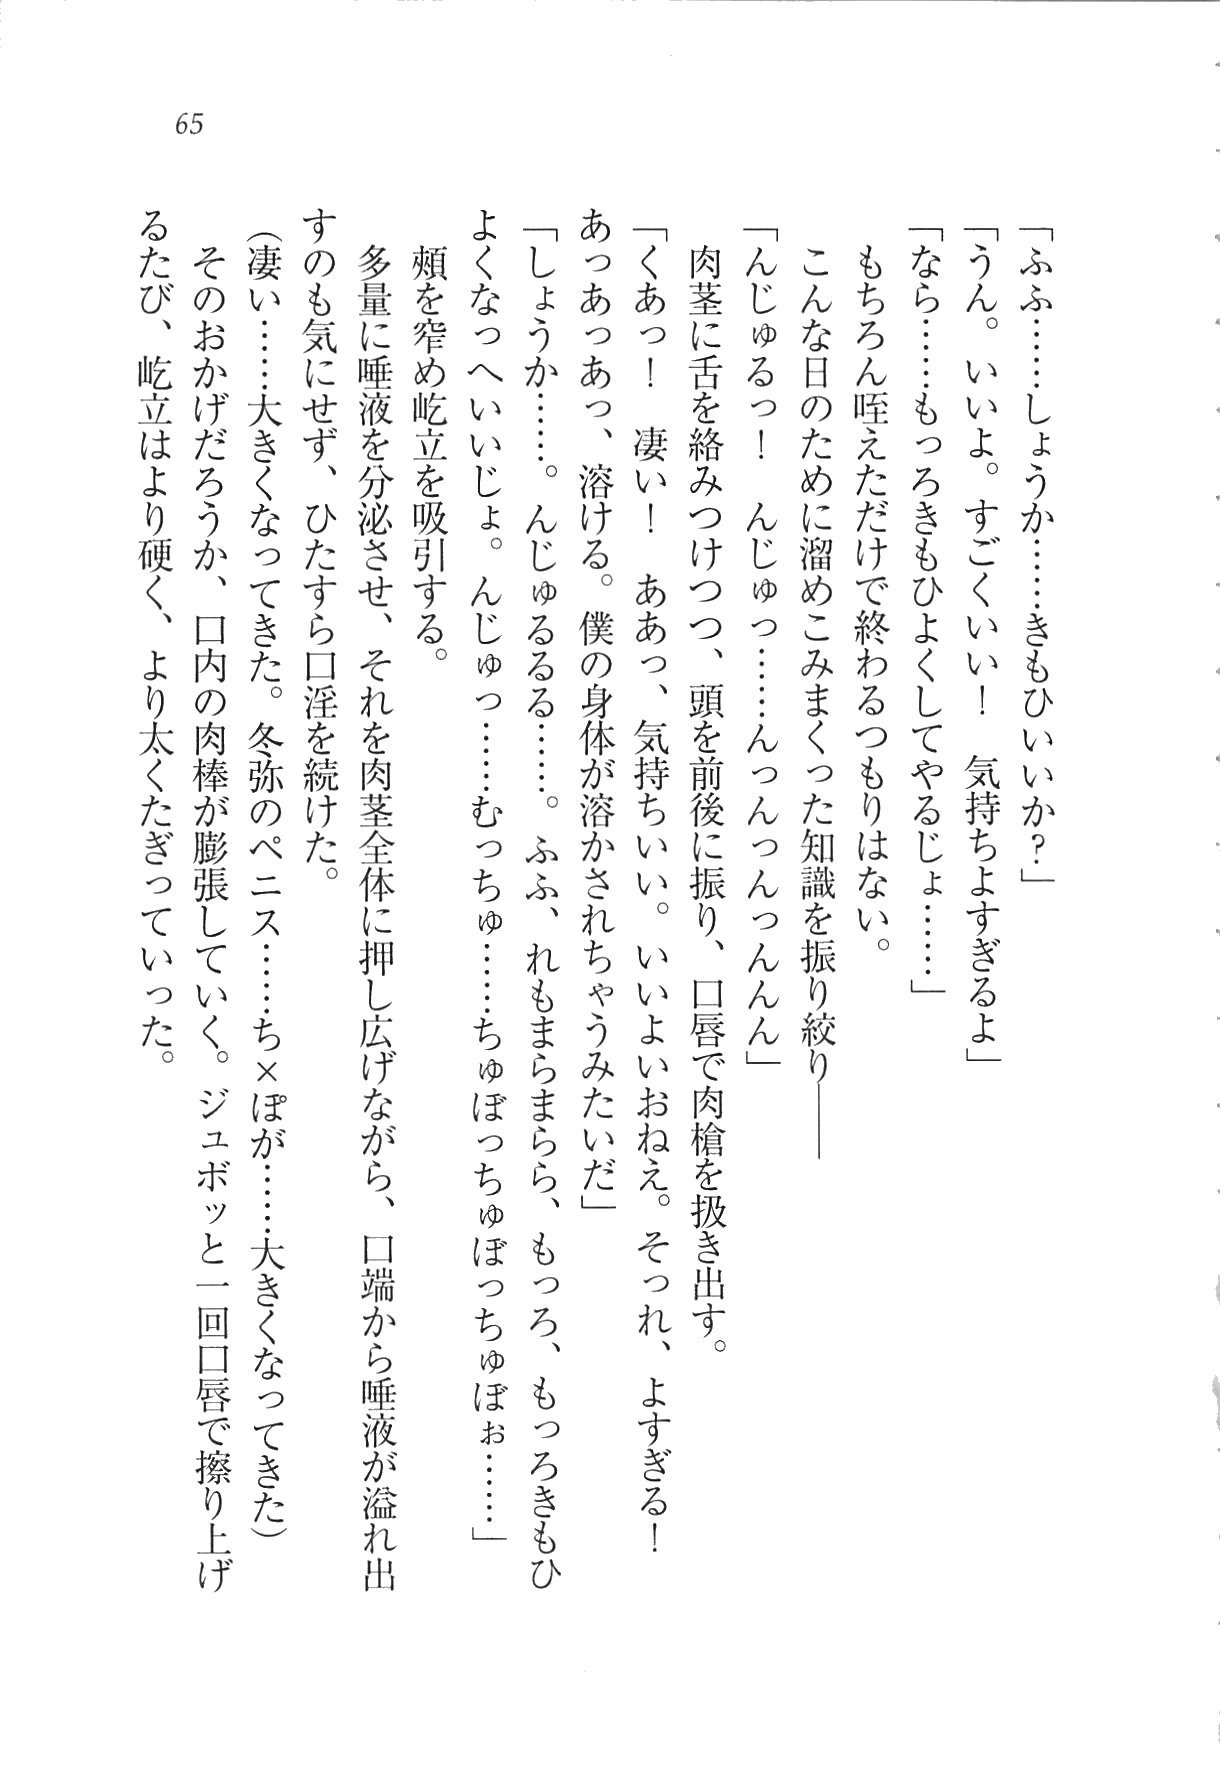 65
「ふふ……しょうか……きもひいいか？」
「うん。いいよ。すごくいい！　気持ちよすぎるよ」
「なら……もっろきもひよくしてやるじょ……」
　もちろん咥えただけで終わるつもりはない。
　こんな日のために溜めこみまくった知識を振り絞り――
「んじゅるっ！　んじゅっ……んっんっんっんんん」
　肉茎に舌を絡みつけつつ、頭を前後に振り、口唇で肉槍を扱き出す。
「くあっ！　凄い！　ああっ、気持ちいい。いいよいおねえ。そっれ、よすぎる！
あっあっあっ、溶ける。僕の身体が溶かされちゃうみたいだ」
「しょうか……。んじゅるるる……。ふふ、れもまらまらら、もっろ、もっろきもひ
よくなっへいいじょ。んじゅっ……むっちゅ……ちゅぼっちゅぼっちゅぼぉ……」
　頰を窄め屹立を吸引する。
　多量に唾液を分泌させ、それを肉茎全体に押し広げながら、口端から唾液が溢れ出
すのも気にせず、ひたすら口淫を続けた。
（凄い……大きくなってきた。冬弥のペニス……ち×ぽが……大きくなってきた）
　そのおかげだろうか、口内の肉棒が膨張していく。ジュボッと一回口唇で擦り上げ
るたび、屹立はより硬く、より太くたぎっていった。